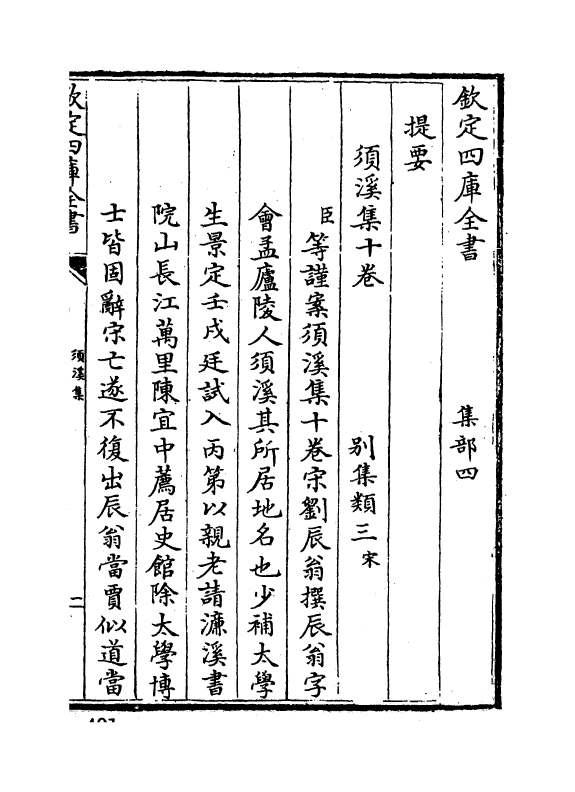 欽定四庫全書　　　集部四
提要
須溪集十卷　　　别集類三宋
臣等謹案須溪集十卷宋劉辰翁撰辰翁字
會孟廬陵人須溪其所居地名也少補太學
生景定壬戌廷試入丙第以親老請濂溪書
院山長江萬里陳宜中薦居史館除太學博
士皆固辭宋亡遂不復出辰翁當賈似道當
欽定四庫全書
須溪集